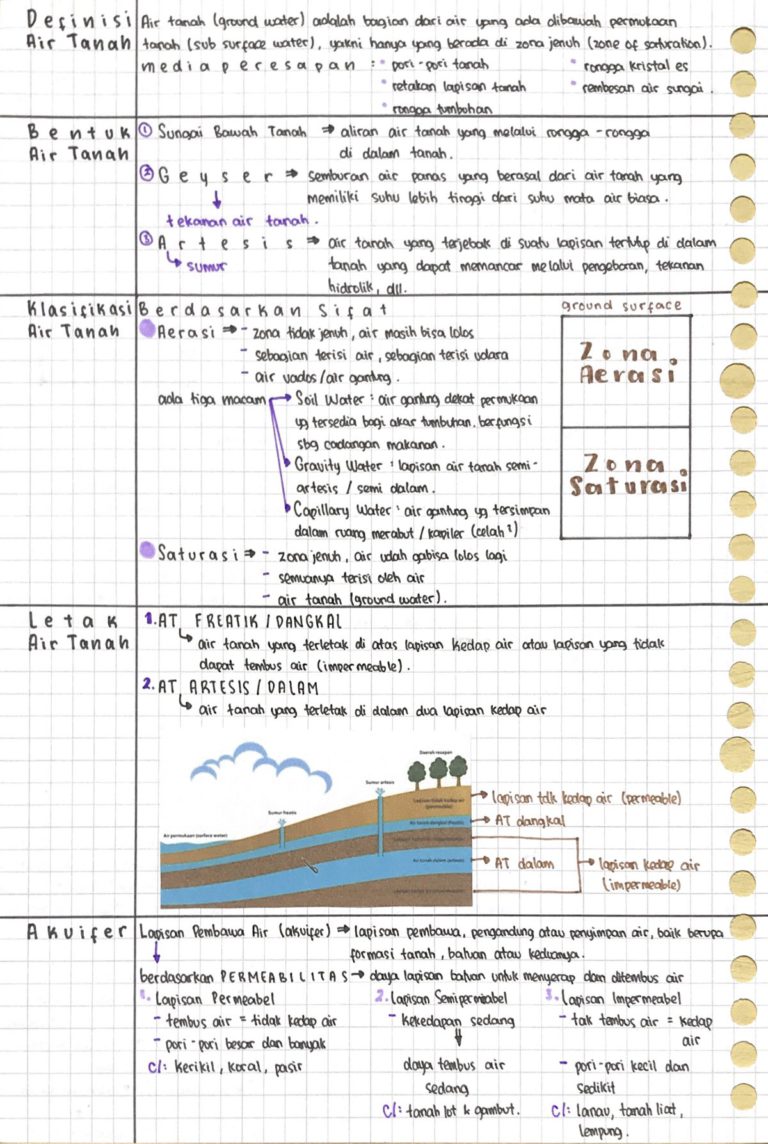 Definisi
Air Tanah
Air tanah (ground water) adalah bagian dari air yang ada dibawah permukaan
tanah (sub surface water), yakni hanya yang berada di zona jenuh (zone of saturation).
media peresapan : • pori-pori tanah • rongga kristal es
• retakan lapisan tanah • rembesan air sungai.
• rongga tumbohan
Bentuk
Air Tanah
① Sungai Bawah Tanah ⇒ aliran air tanah yang melalui rongga-rongga
di dalam tanah.
② Geyser ⇒ semburan air panas yang berasal dari air tanah yang
memiliki suhu lebih tinggi dari suhu mata air biasa.
tekanan air tanah.
③ Artesis ⇒ air tanah yang terjebak di suatu lapisan tertutup di dalam
sumur
tanah yang dapat memancar melalui pengeboran, tekanan
hidrolik, dll.
Klasifikasi
Air Tanah
Berdasarkan Sifat
Aerasi ⇒ - zona tidak jenuh, air masih bisa lolos
- sebagian terisi air, sebagian terisi udara
- air vados/air gantung.
ada tiga macam → Soil Water : air gantung dekat permukaan
yg tersedia bagi akar tumbuhan, berfungsi
sbg cadangan makanan.
Gravity Water : lapisan air tanah semi-
artesis / semi dalam.
Capillary Water : air gantung yg tersimpan
dalam ruang merabut / kapiler (celah²)
Saturasi ⇒ - zona jenuh, air udah gabisa lolos lagi
- semuanya terisi oleh air
- air tanah (ground water).
ground surface
Zona
Aerasi
Zona
Saturasi
Letak
Air Tanah
1. AT FREATIK / DANGKAL
air tanah yang terletak di atas lapisan kedap air atau lapisan yang tidak
dapat tembus air (impermeable).
2. AT ARTESIS / DALAM
air tanah yang terletak di dalam dua lapisan kedap air
Daerah resapan
Sumur artesis
Sumur freatis
Air permukaan (surface water)
Lapisan tidak kedap air
(permeable)
lapisan tdk kedap air (permeable)
AT dangkal
AT dalam
lapisan kedap air
(impermeable)
Akuifer
Lapisan Pembawa Air (akuifer) ⇒ lapisan pembawa, pengandung atau penyimpan air, baik berupa
formasi tanah, batuan atau keduanya.
berdasarkan PERMEABILITAS → daya lapisan batuan untuk menyerap dan ditembus air
1. Lapisan Permeabel
- tembus air = tidak kedap air
- pori-pori besar dan banyak
c/: kerikil, koral, pasir
2. lapisan Semipermeabel
- kekedapan sedang
daya tembus air
sedang
c/: tanah lot & gambut.
3. lapisan Impermeabel
- tak tembus air = kedap
air
- pori-pori kecil dan
sedikit
c/: lanau, tanah liat,
lempung.